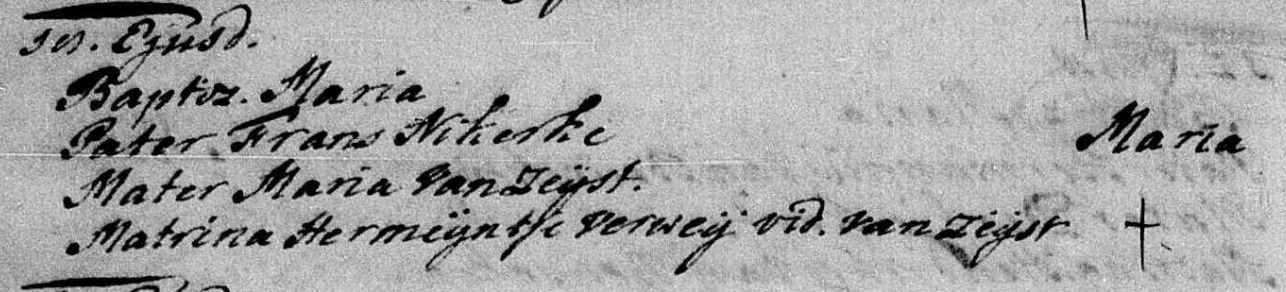 Ejusd.
Baptiz. Maria
Pater Frans Nikerke
Maria
Mater Maria van Zeijst.
Matrina Hermeijntje Verweij vid. van Zeijst †